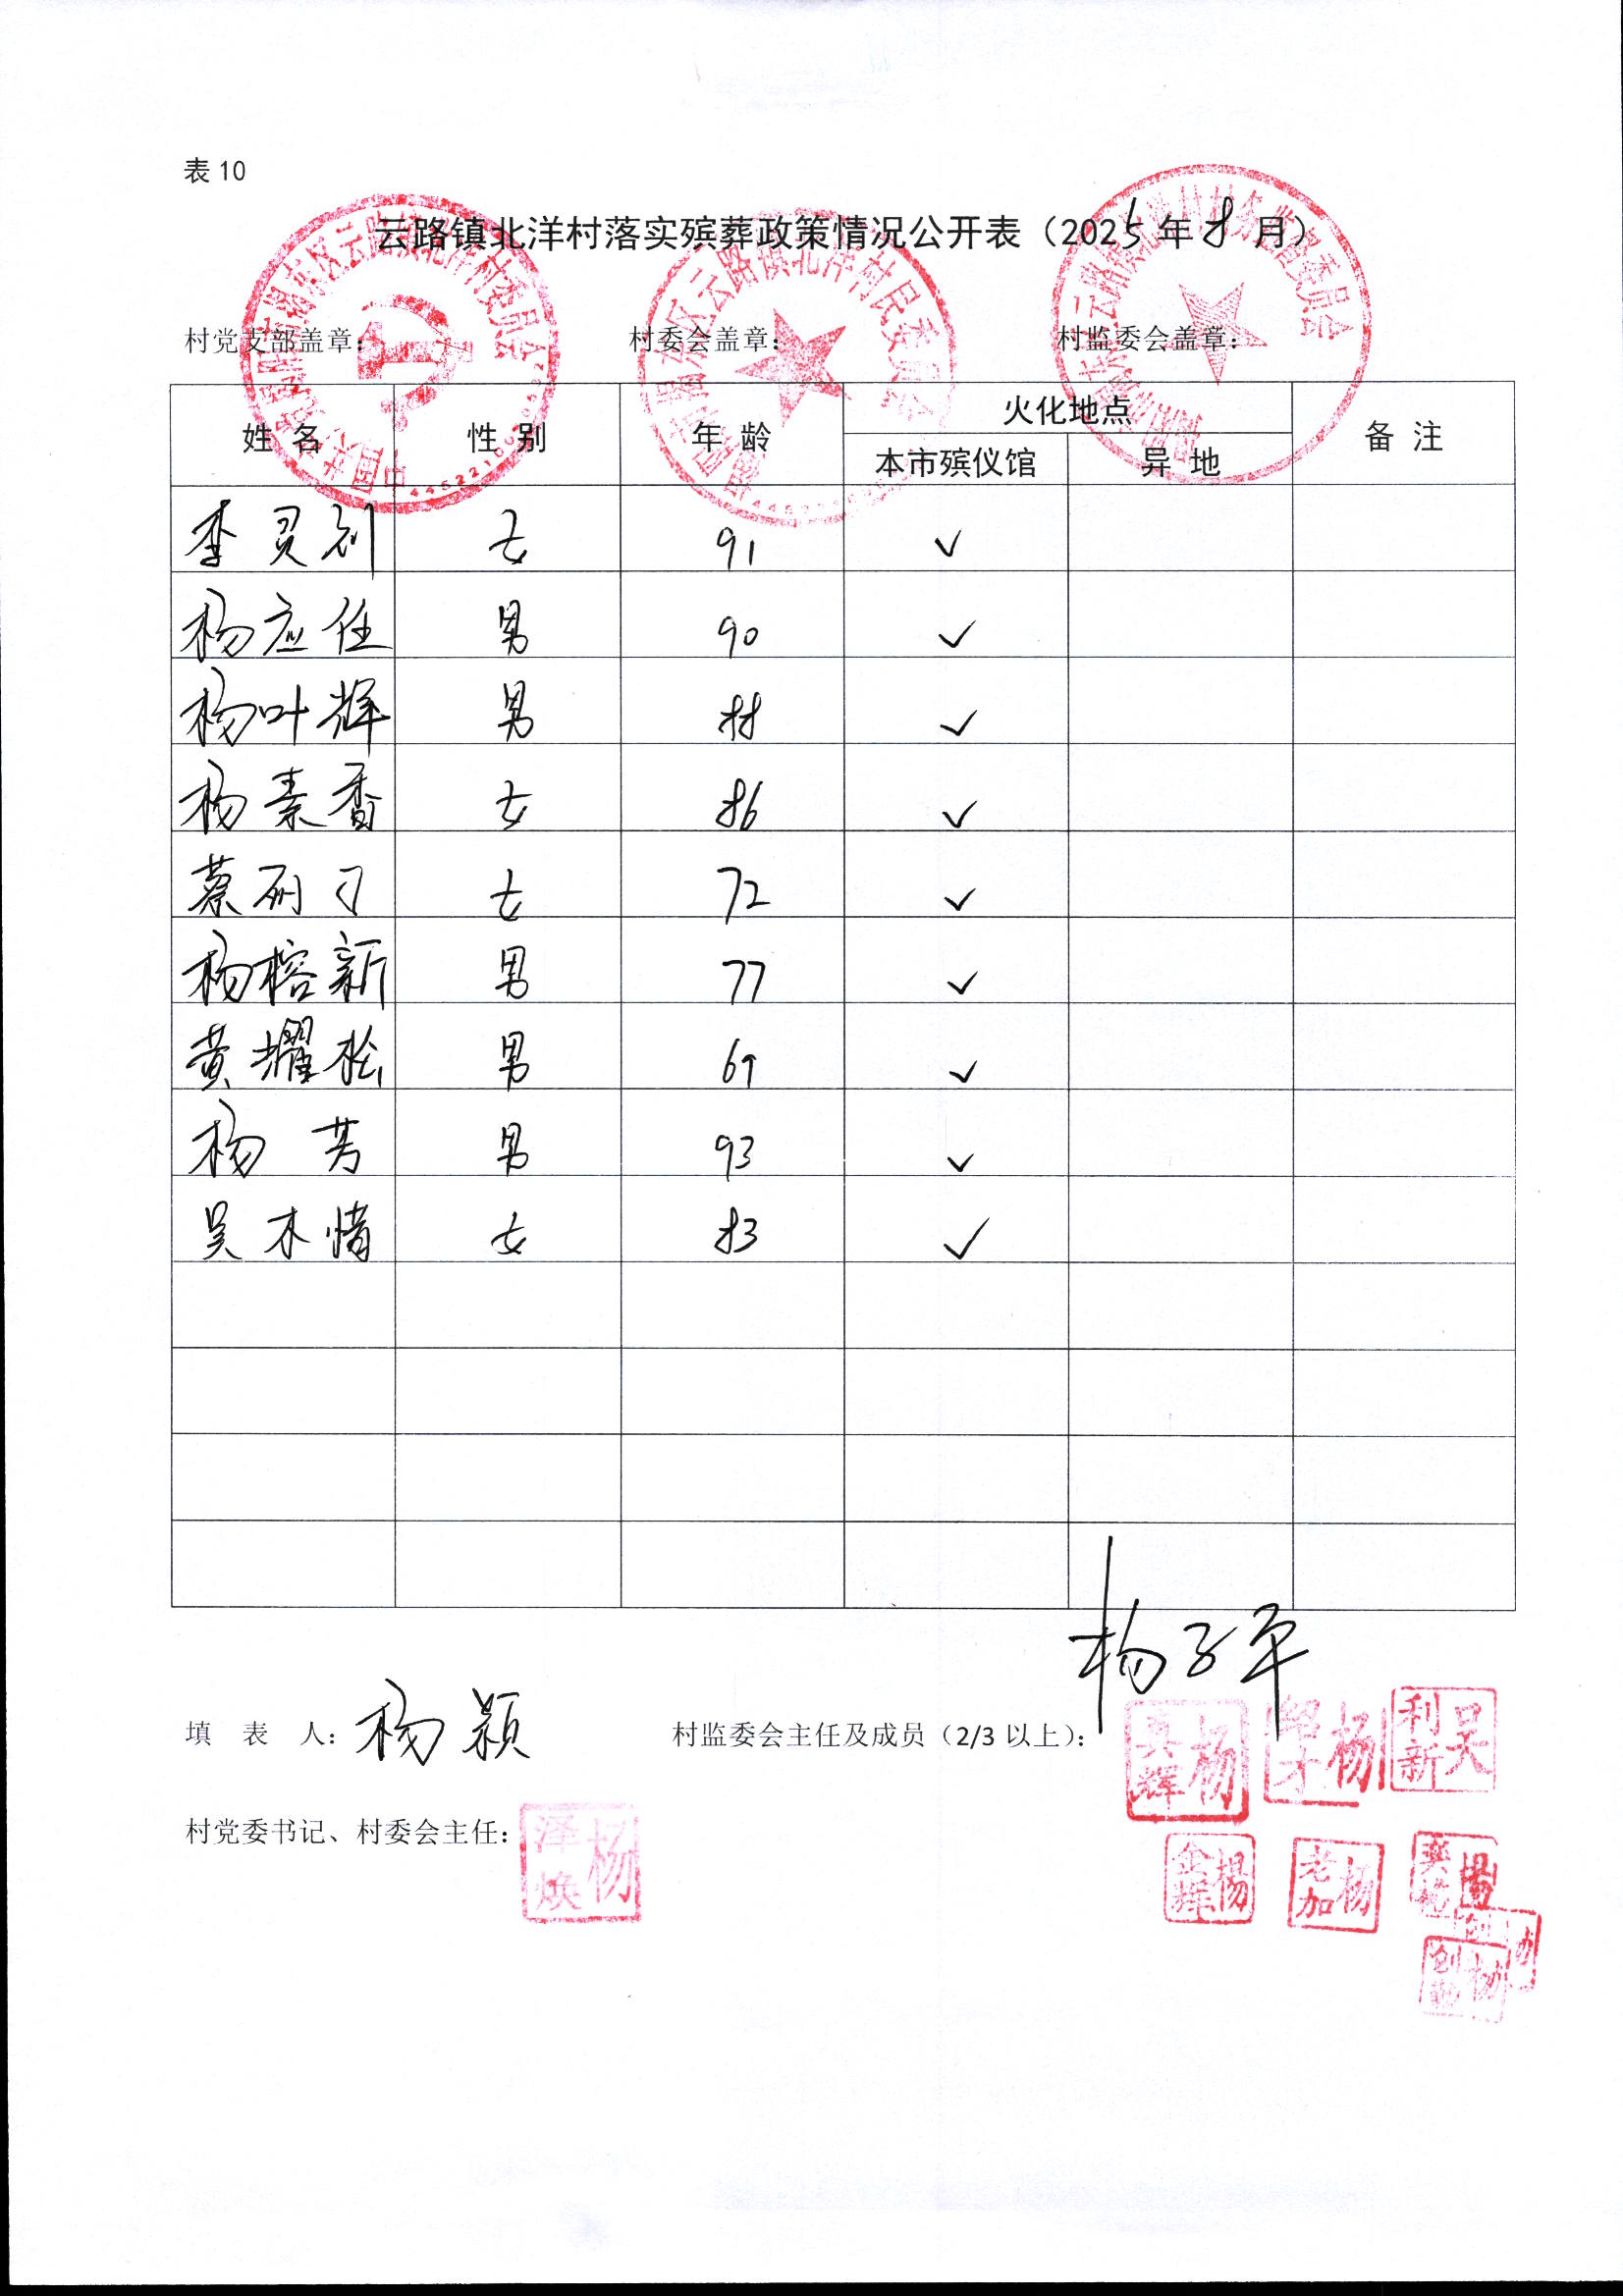 表 10
云路镇北洋村落实殡葬政策情况公开表（2025年8月）
村党支部盖章： 村委会盖章： 村监委会盖章：
姓 名 性 别 年 龄 火化地点 备 注
本市殡仪馆 异 地
李灵创 女 91 ✓
杨应任 男 90 ✓
杨叶辉 男 88 ✓
杨素香 女 86 ✓
蔡 女 72 ✓
杨榕新 男 77 ✓
黄耀松 男 69 ✓
杨芳 男 93 ✓
吴木惜 女 83 ✓
杨子平
填 表 人：杨颖 村监委会主任及成员（2/3 以上）：
杨 杨 吴利新
村党委书记、村委会主任： 杨泽焕
楊金辉 杨老加
杨创